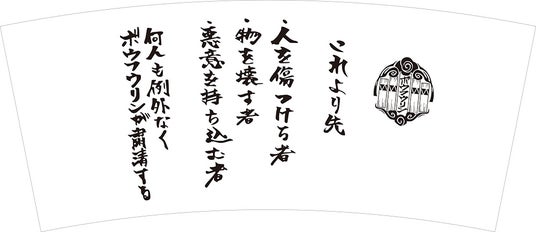 ボウフウリン
これより先
・人を傷つける者
・物を壊す者
・悪意を持ち込む者
何人も例外なく
ボウフウリンが粛清する